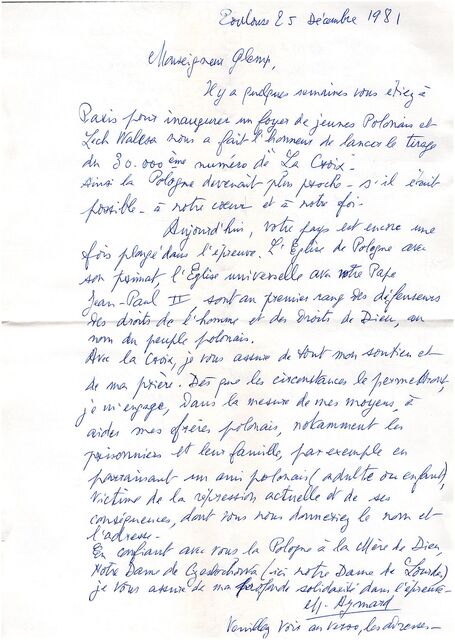 Toulouse 25 Décembre 1981
Monseigneur Glemp,
Il y a quelques semaines vous étiez à
Paris pour inaugurer un foyer de jeunes Polonais et
Lech Walesa nous a fait l'honneur de lancer le tirage
du 30.000ème numéro de La Croix.
Ainsi la Pologne devenait plus proche - s'il était
possible - à notre cœur et à notre foi.
Aujourd'hui, votre pays est encore une
fois plongé dans l'épreuve. L'Eglise de Pologne avec
son primat, l'Eglise universelle avec notre Pape
Jean-Paul II sont au premier rang des défenseurs
des droits de l'homme et des Droits de Dieu, au
nom du peuple polonais.
Avec la Croix, je vous assure de tout mon soutien et
de ma prière. Dès que les circonstances le permettront,
je m'engage, dans la mesure de mes moyens, à
aider mes frères polonais, notamment les
prisonniers et leur famille, par exemple en
parrainant un ami polonais (adulte ou enfant),
victime de la répression actuelle et de ses
conséquences, dont vous nous donneriez le nom et
l'adresse -
En confiant avec vous la Pologne à la Mère de Dieu,
Notre Dame de Czestochowa (ici notre Dame de Lourdes)
je vous assure de ma profonde solidarité dans l'épreuve -
M. Aymard
Veuillez voir au verso, les adresses -